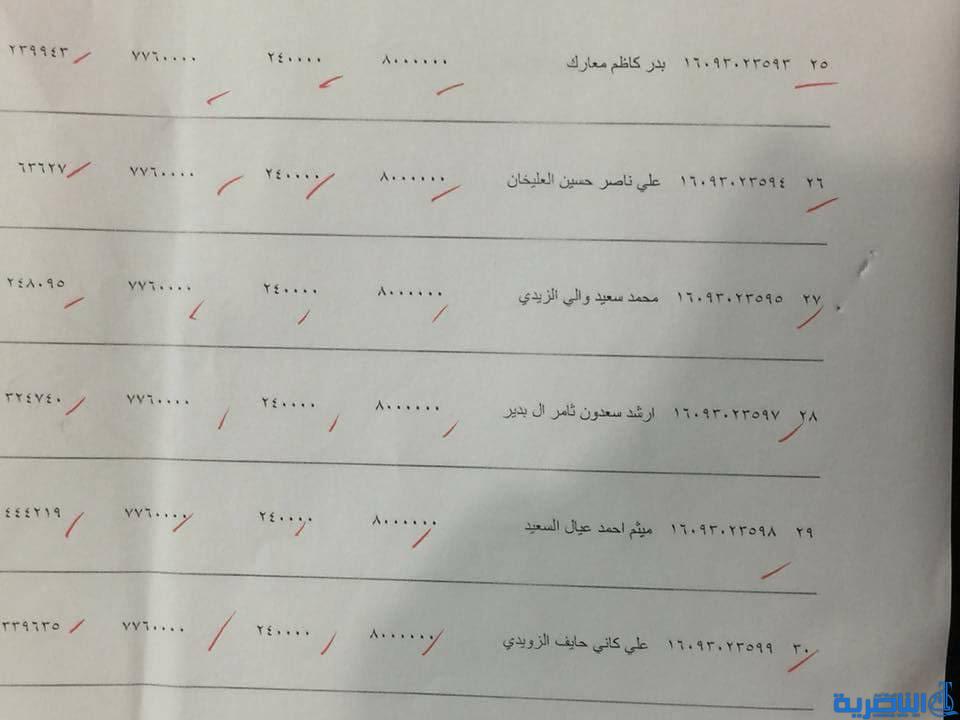 ٢٥ ١٦٠٩٣٠٢٣٥٩٣ بدر كاظم معارك ٨٠٠٠٠٠٠ ٢٤٠٠٠٠ ٧٧٦٠٠٠٠ ٢٣٩٩٤٣
٢٦ ١٦٠٩٣٠٢٣٥٩٤ علي ناصر حسين العليخان ٨٠٠٠٠٠٠ ٢٤٠٠٠٠ ٧٧٦٠٠٠٠ ٦٣٦٢٧
٢٧ ١٦٠٩٣٠٢٣٥٩٥ محمد سعيد والي الزيدي ٨٠٠٠٠٠٠ ٢٤٠٠٠٠ ٧٧٦٠٠٠٠ ٢٤٨٠٩٥
٢٨ ١٦٠٩٣٠٢٣٥٩٧ ارشد سعدون ثامر ال بدير ٨٠٠٠٠٠٠ ٢٤٠٠٠٠ ٧٧٦٠٠٠٠ ٣٢٤٧٤٠
٢٩ ١٦٠٩٣٠٢٣٥٩٨ ميثم احمد عيال السعيد ٨٠٠٠٠٠٠ ٢٤٠٠٠٠ ٧٧٦٠٠٠٠ ٤٤٤٢١٩
٣٠ ١٦٠٩٣٠٢٣٥٩٩ علي كاني حايف الزويدي ٨٠٠٠٠٠٠ ٢٤٠٠٠٠ ٧٧٦٠٠٠٠ ٣٣٩٦٣٥
الناصرية